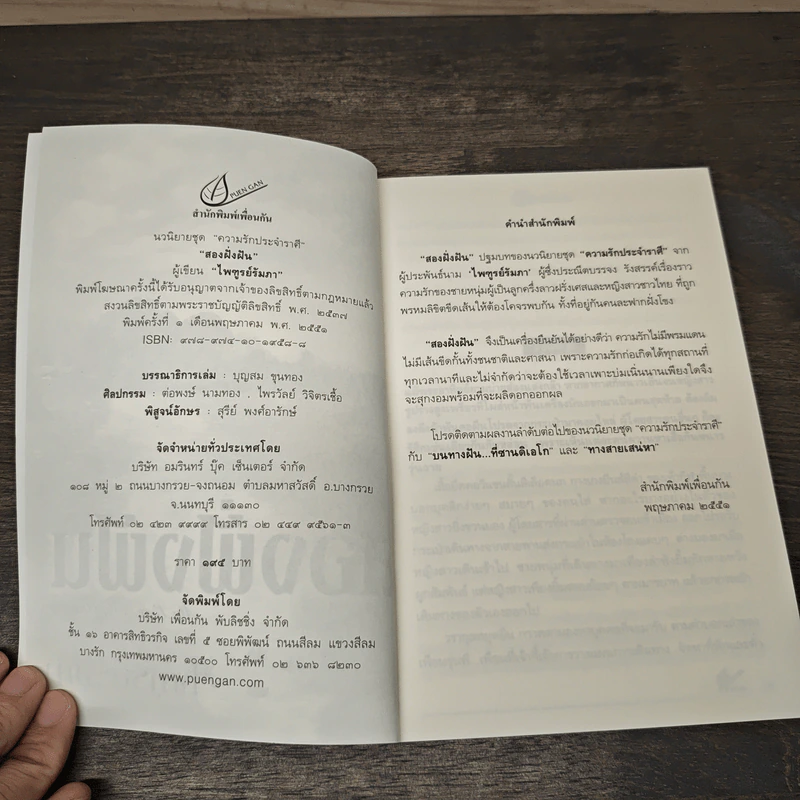 PUEN GAN
สำนักพิมพ์เพื่อนกัน
นวนิยายชุด "ความรักประจำราศี"
"สองฝั่งฝัน"
ผู้เขียน "ไพฑูรย์รัมภา"
พิมพ์โฆษณาครั้งนี้ได้รับอนุญาตจากเจ้าของลิขสิทธิ์ตามกฎหมายแล้ว
สงวนลิขสิทธิ์ตามพระราชบัญญัติลิขสิทธิ์ พ.ศ. ๒๕๓๗
พิมพ์ครั้งที่ ๑ เดือนพฤษภาคม พ.ศ. ๒๕๕๑
ISBN: ๙๗๘-๙๗๔-๑๐-๑๙๕๘-๘
บรรณาธิการเล่ม : บุญสม ขุนทอง
ศิลปกรรม : ต่อพงษ์ นามทอง , ไพรวัลย์ วิจิตรเชื้อ
พิสูจน์อักษร : สุรีย์ พงศ์อารักษ์
จัดจำหน่ายทั่วประเทศโดย
บริษัท อมรินทร์ บุ๊ค เซ็นเตอร์ จำกัด
๑๐๘ หมู่ ๒ ถนนบางกรวย-จงถนอม ตำบลมหาสวัสดิ์ อ.บางกรวย
จ.นนทบุรี ๑๑๑๓๐
โทรศัพท์ ๐๒ ๔๒๓ ๙๙๙๙ โทรสาร ๐๒ ๔๔๙ ๙๕๖๑-๓
ราคา ๑๙๕ บาท
จัดพิมพ์โดย
บริษัท เพื่อนกัน พับลิชชิ่ง จำกัด
ชั้น ๑๖ อาคารสิทธิวรกิจ เลขที่ ๕ ซอยพิพัฒน์ ถนนสีลม แขวงสีลม
บางรัก กรุงเทพมหานคร ๑๐๕๐๐ โทรศัพท์ ๐๒ ๖๓๖ ๘๒๓๐
www.puengan.com
คำนำสำนักพิมพ์
"สองฝั่งฝัน" ปฐมบทของนวนิยายชุด "ความรักประจำราศี" จาก
ผู้ประพันธ์นาม 'ไพฑูรย์รัมภา' ผู้ซึ่งประณีตบรรจง รังสรรค์เรื่องราว
ความรักของชายหนุ่มผู้เป็นลูกครึ่งลาวฝรั่งเศสและหญิงสาวชาวไทย ที่ถูก
พรหมลิขิตขีดเส้นให้ต้องโคจรพบกัน ทั้งที่อยู่กันคนละฟากฝั่งโขง
"สองฝั่งฝัน" จึงเป็นเครื่องยืนยันได้อย่างดีว่า ความรักไม่มีพรมแดน
ไม่มีเส้นขีดกั้นทั้งชนชาติและศาสนา เพราะความรักก่อเกิดได้ทุกสถานที่
ทุกเวลานาทีและไม่จำกัดว่าจะต้องใช้เวลาเพาะบ่มเนิ่นนานเพียงใดจึง
จะสุกงอมพร้อมที่จะผลิดอกออกผล
โปรดติดตามผลงานลำดับต่อไปของนวนิยายชุด "ความรักประจำราศี"
กับ "บนทางฝัน...ที่ซานดิเอโก" และ "ทางสายเสน่หา"
สำนักพิมพ์เพื่อนกัน
พฤษภาคม ๒๕๕๑